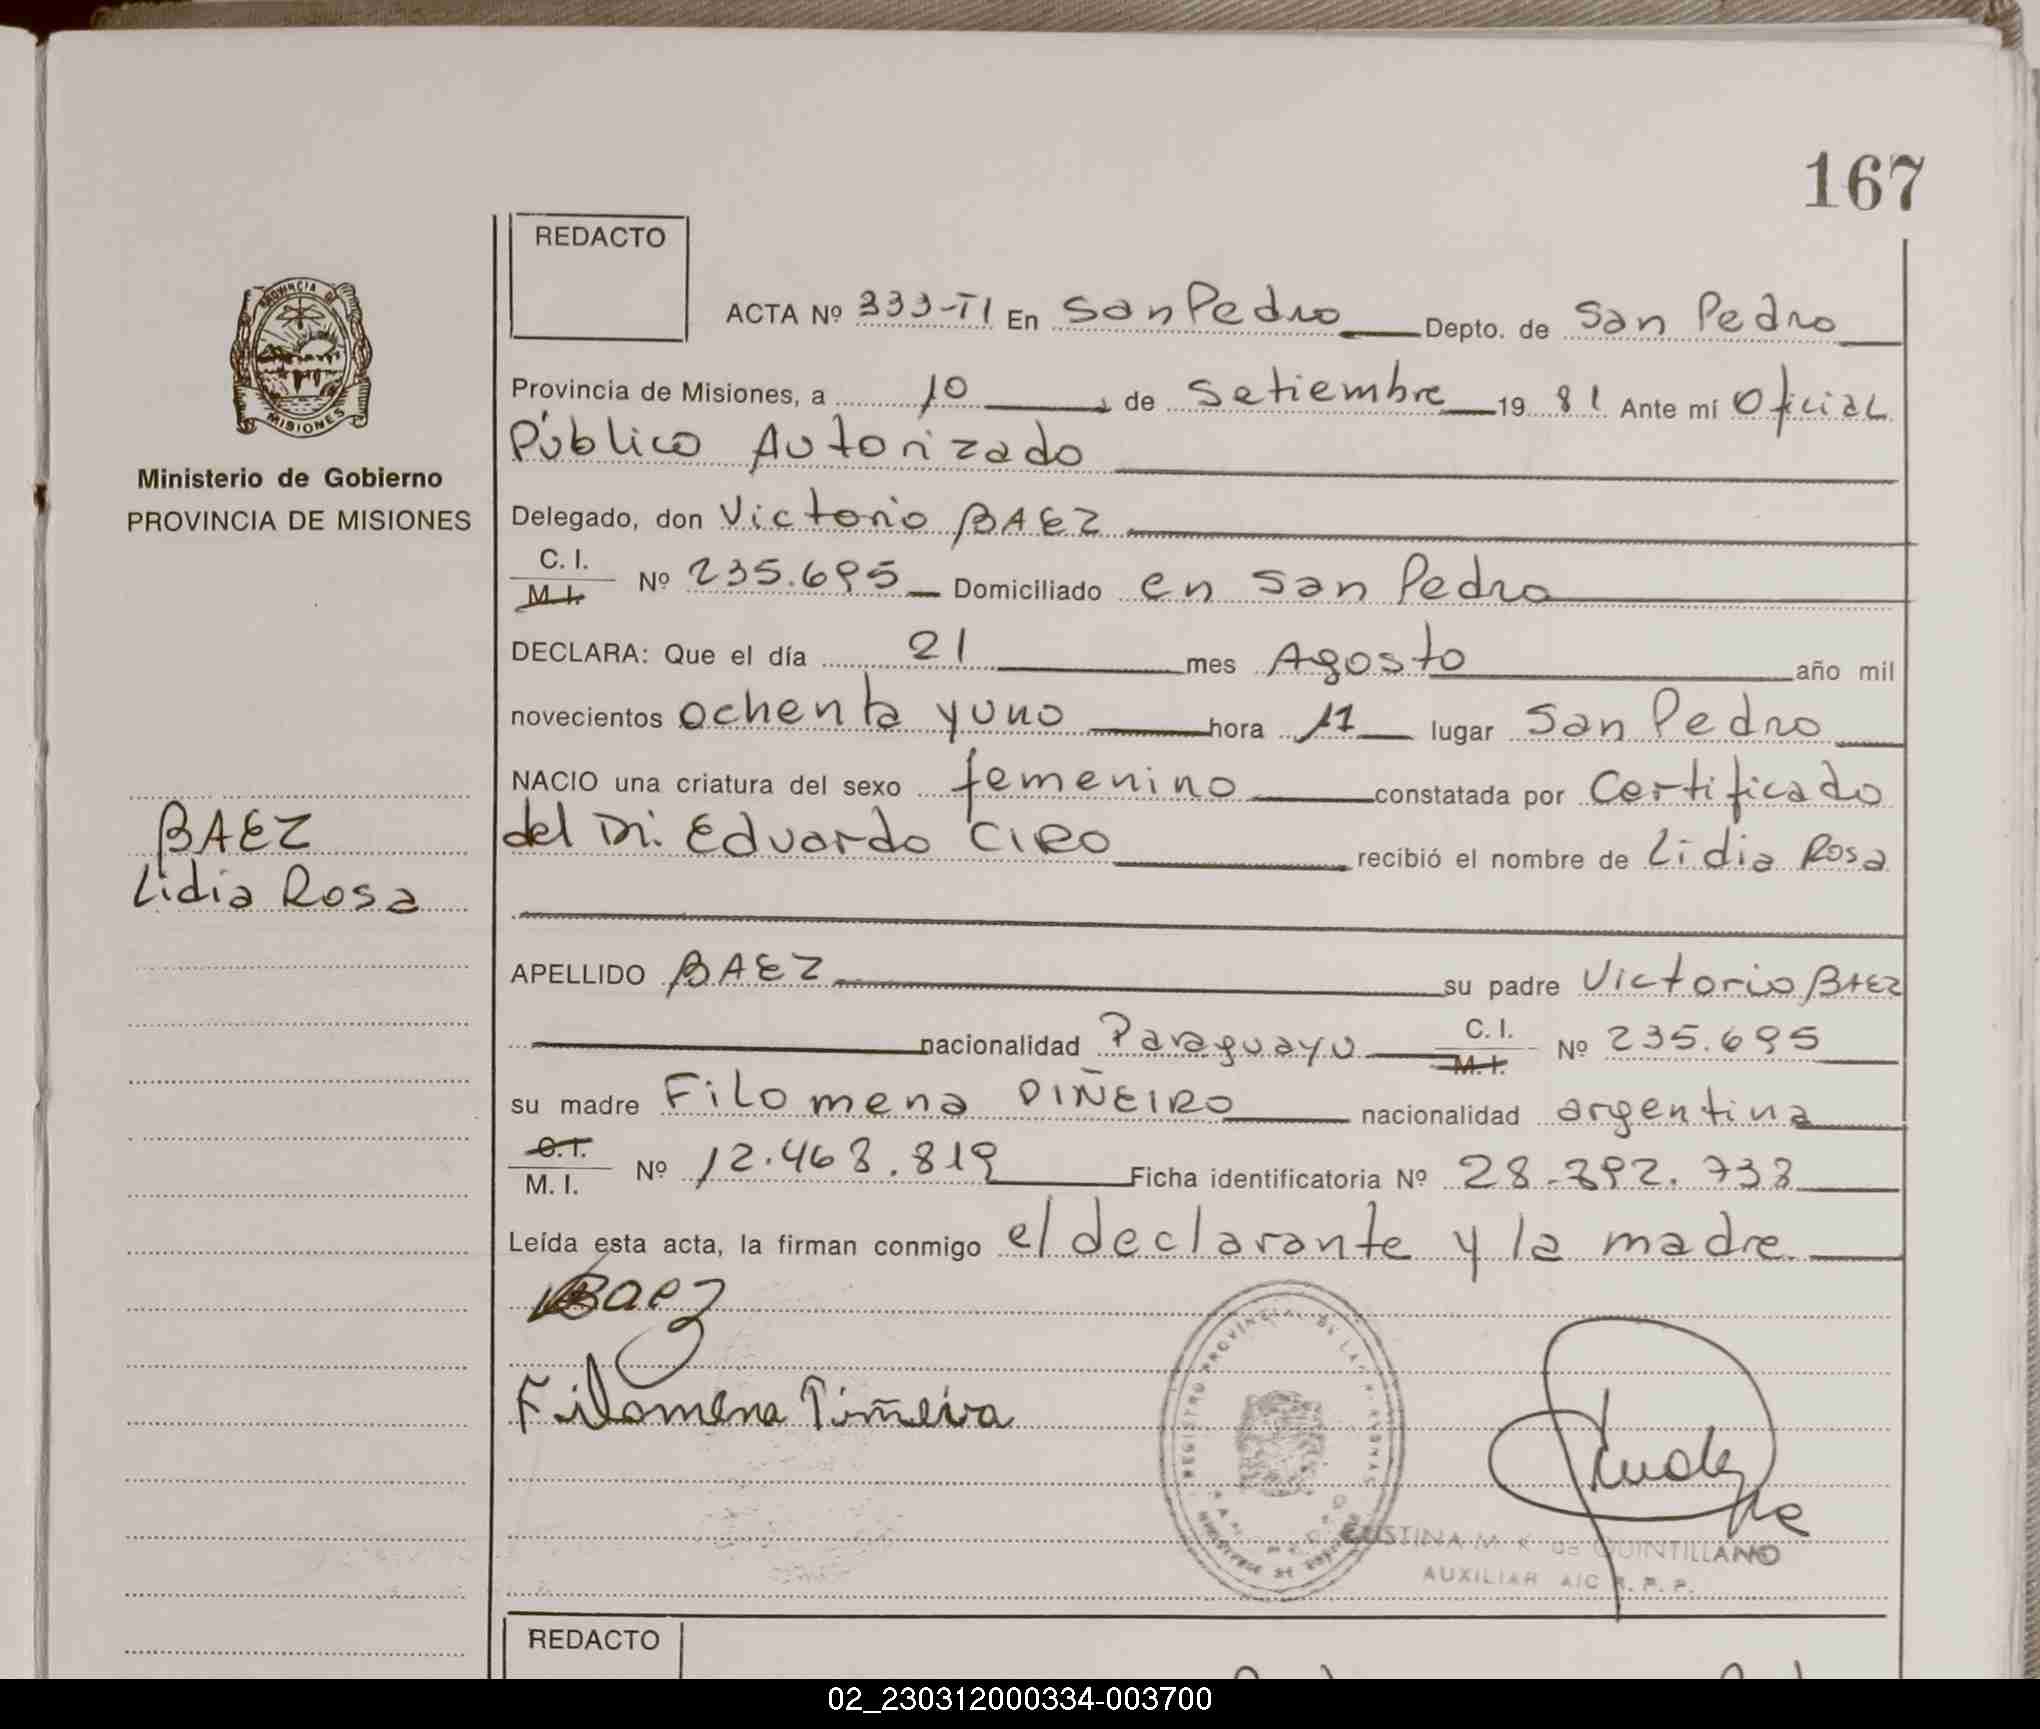 167
REDACTO
PROVINCIA DE
MISIONES
Ministerio de Gobierno
PROVINCIA DE MISIONES
BAEZ
Lidia Rosa
ACTA Nº 333-T1 En San Pedro Depto. de San Pedro
Provincia de Misiones, a 10 de Setiembre 19 81 Ante mí Oficial
Público Autorizado
Delegado, don Victorio BAEZ
C. I.
M. I. Nº 235.695 Domiciliado en San Pedro
DECLARA: Que el día 21 mes Agosto año mil
novecientos ochenta y uno hora 11 lugar San Pedro
NACIO una criatura del sexo femenino constatada por Certificado
del Dr. Eduardo CIRO recibió el nombre de Lidia Rosa
APELLIDO BAEZ su padre Victorio BAEZ
nacionalidad Paraguayo C. I.
M. I. Nº 235.695
su madre Filomena PIÑEIRO nacionalidad argentina
C. I.
M. I. Nº 12.468.819 Ficha identificatoria Nº 28.392.738
Leída esta acta, la firman conmigo el declarante y la madre
Baez
Filomena Piñeira
REGISTRO PROVINCIAL DE LAS PERSONAS
QUINTILLANO
AUXILIAR A/C R. P. P.
REDACTO
02_230312000334-003700